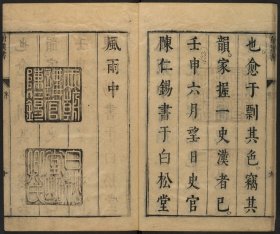 也愈于剽其色竊其
韻家握一史漢者已
壬申六月望日史官
陳仁錫書于白松堂
風雨中